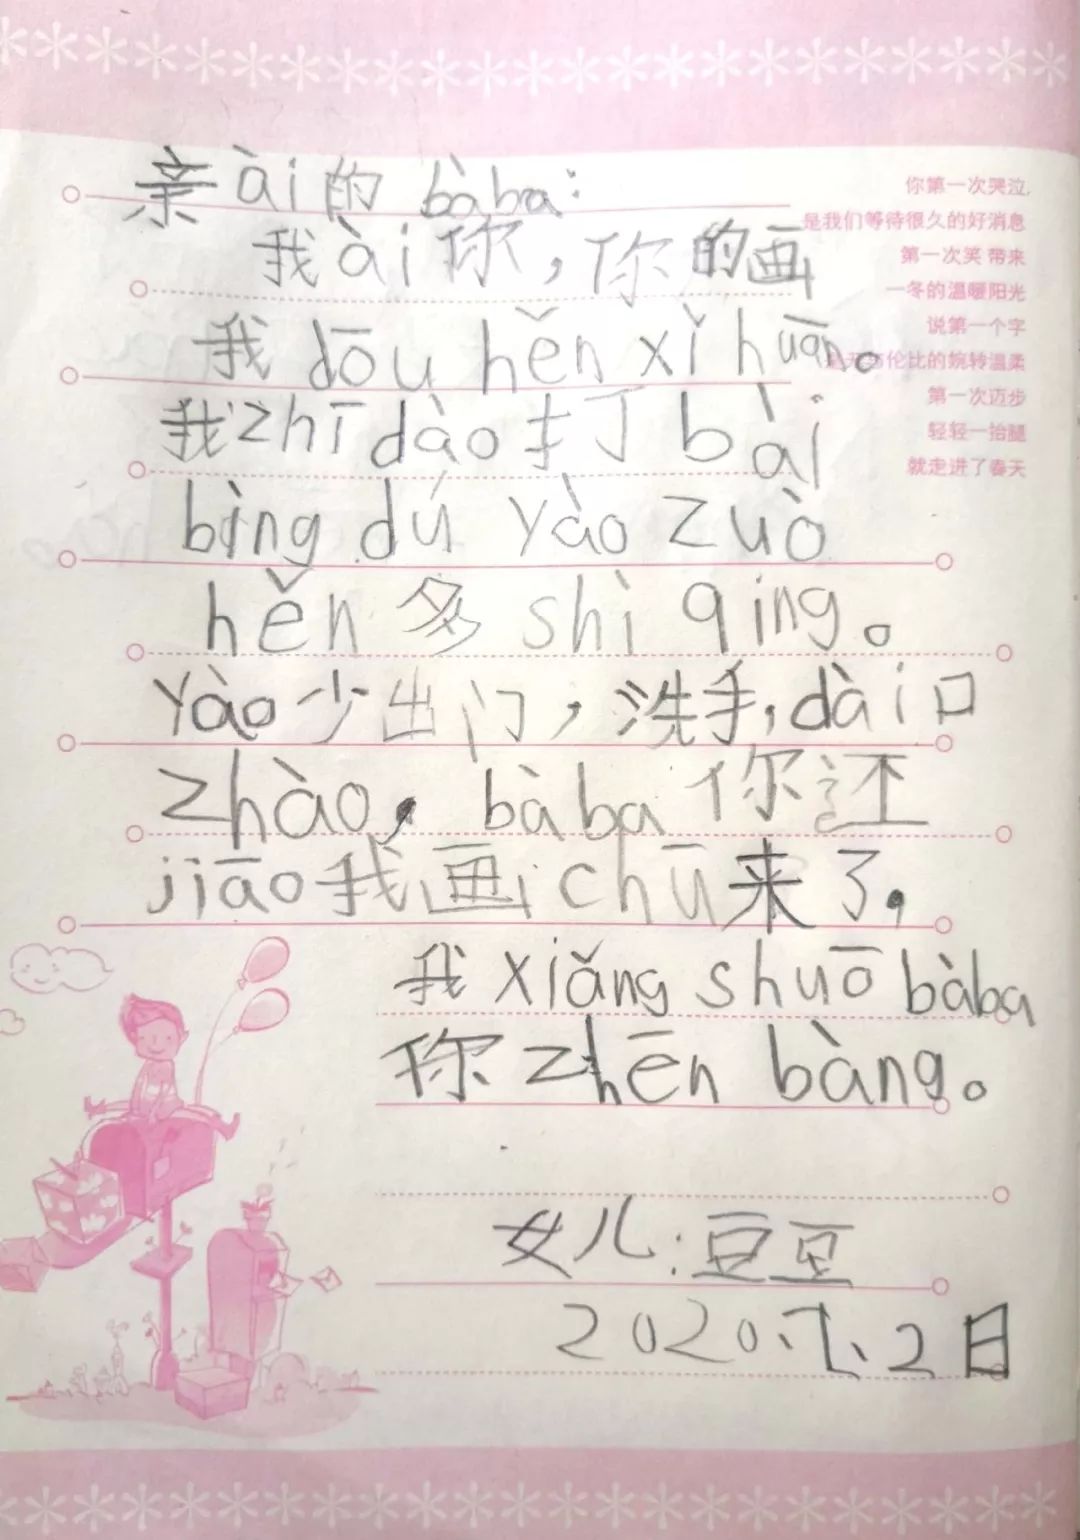 亲ài的bàba：
我ài你，你的画
我dōu hěn xǐ huān。
我zhī dào打bài
bìng dú yào zuò
hěn多shì qing。
yào少出门，洗手，dài口
zhào，bàba你还
jiāo我画chū来了，
我xiǎng shuō bàba
你zhēn bàng。
女儿：豆豆
2日
你第一次哭泣，
是我们等待很久的好消息
第一次笑 带来
一冬的温暖阳光
说第一个字
伦比的婉转温柔
第一次迈步
轻轻一抬腿
就走进了春天